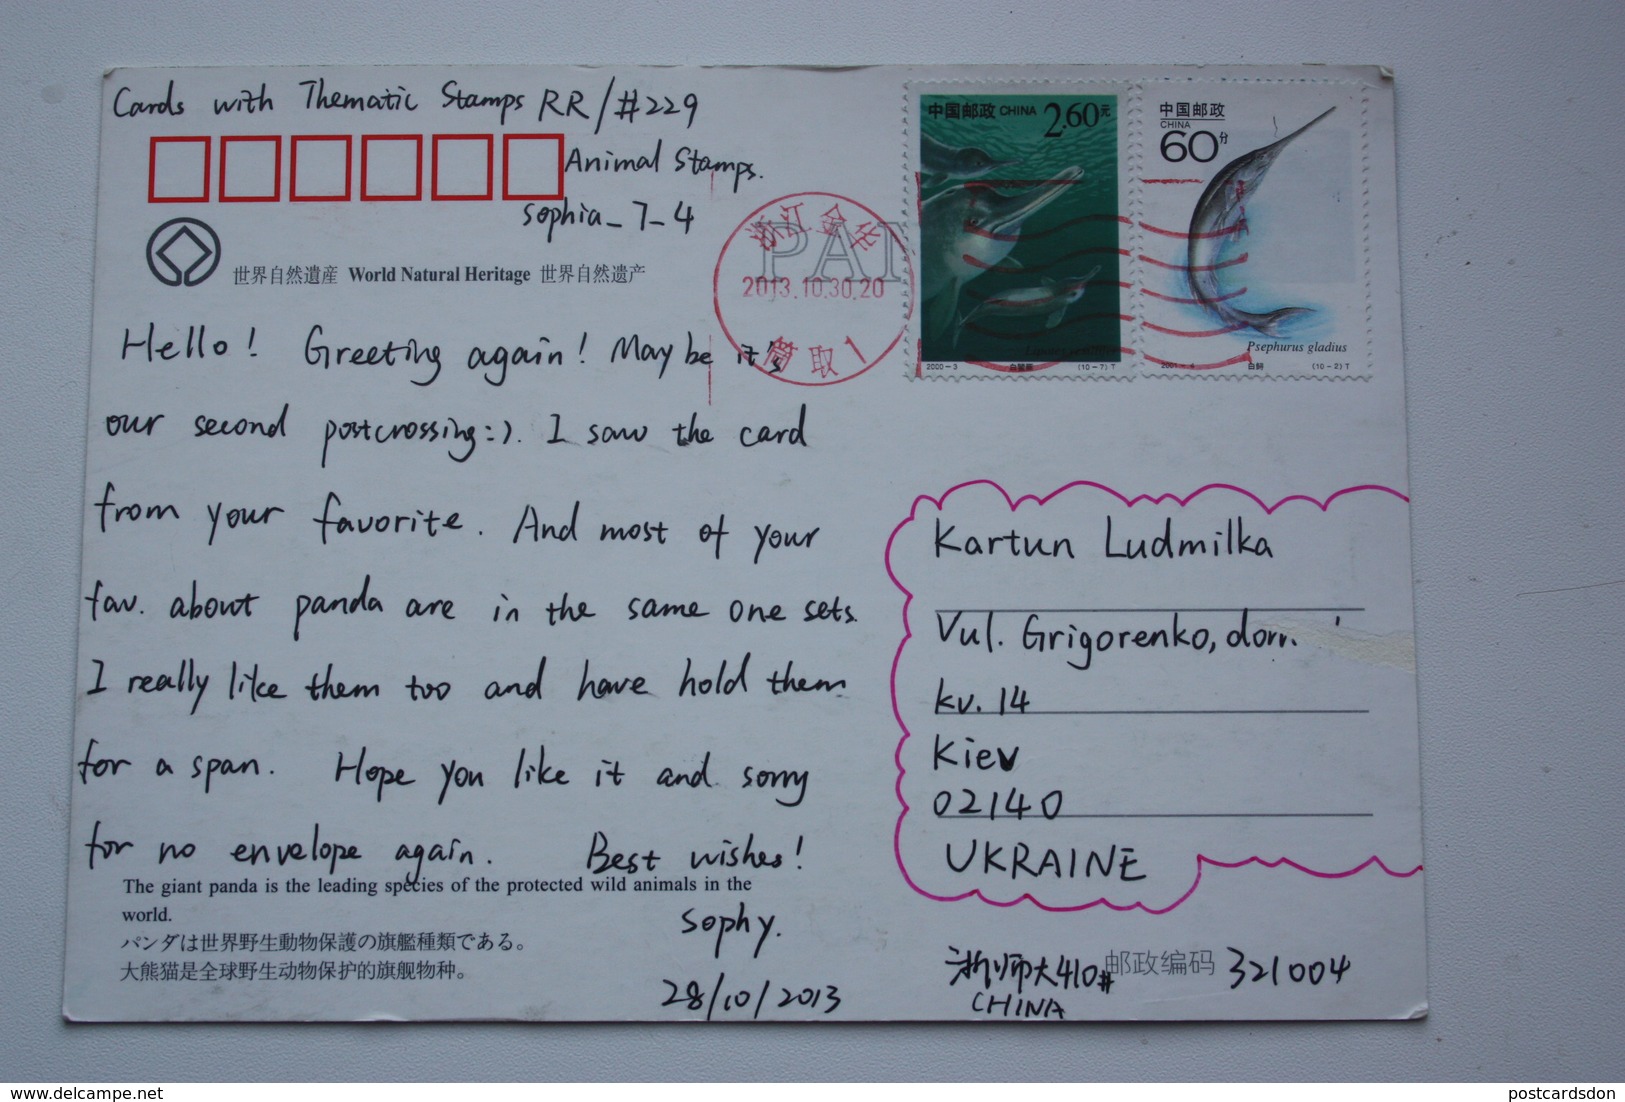 Cards with Thematic Stamps RR/#229
Animal Stamps.
sophia_7_4
世界自然遺産 World Natural Heritage 世界自然遗产
Hello! Greeting again! May be it's
our second postcrossing:). I saw the card
from your favorite. And most of your
fav. about panda are in the same one sets.
I really like them too and have hold them
for a span. Hope you like it and sorry
for no envelope again. Best wishes!
The giant panda is the leading species of the protected wild animals in the
world.
パンダは世界野生動物保護の旗艦種類である。
大熊猫是全球野生动物保护的旗舰物种。
sophy.
28/10/2013
浙江金华
PAI
2013.10.30.20
筒取1
中国邮政 CHINA 2.60元
2000-3 白鱀豚 (10-7)T
中国邮政
CHINA
60分
Psephurus gladius
2001-4 白鲟 (10-2)T
Kartun Ludmilka
Vul. Grigorenko, dom.
kv. 14
Kiev
02140
UKRAINE
浙师大410# 邮政编码 321004
CHINA
www.delcampe.net
postcardsdon